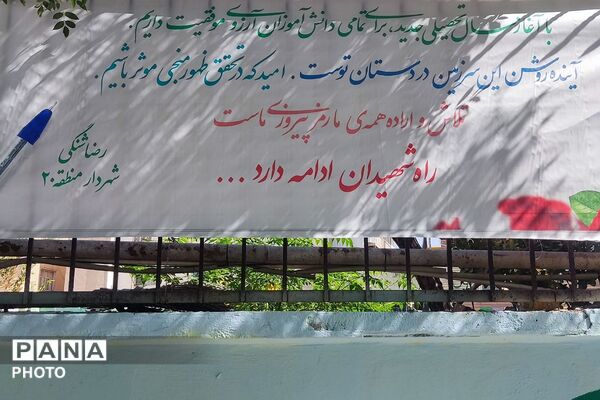 با آغاز سال تحصیلی جدید، برای تمامی دانش‌آموزان آرزوی موفقیت داریم.
آینده روشن این سرزمین در دستان توست. امید که در تحقق ظهور منجی موثر باشیم.
تلاش و اراده همه‌ی ما رمز پیروزی ماست
راه شهیدان ادامه دارد ...
رضا شنگی
شهردار منطقه ۲۰
PANA
PHOTO